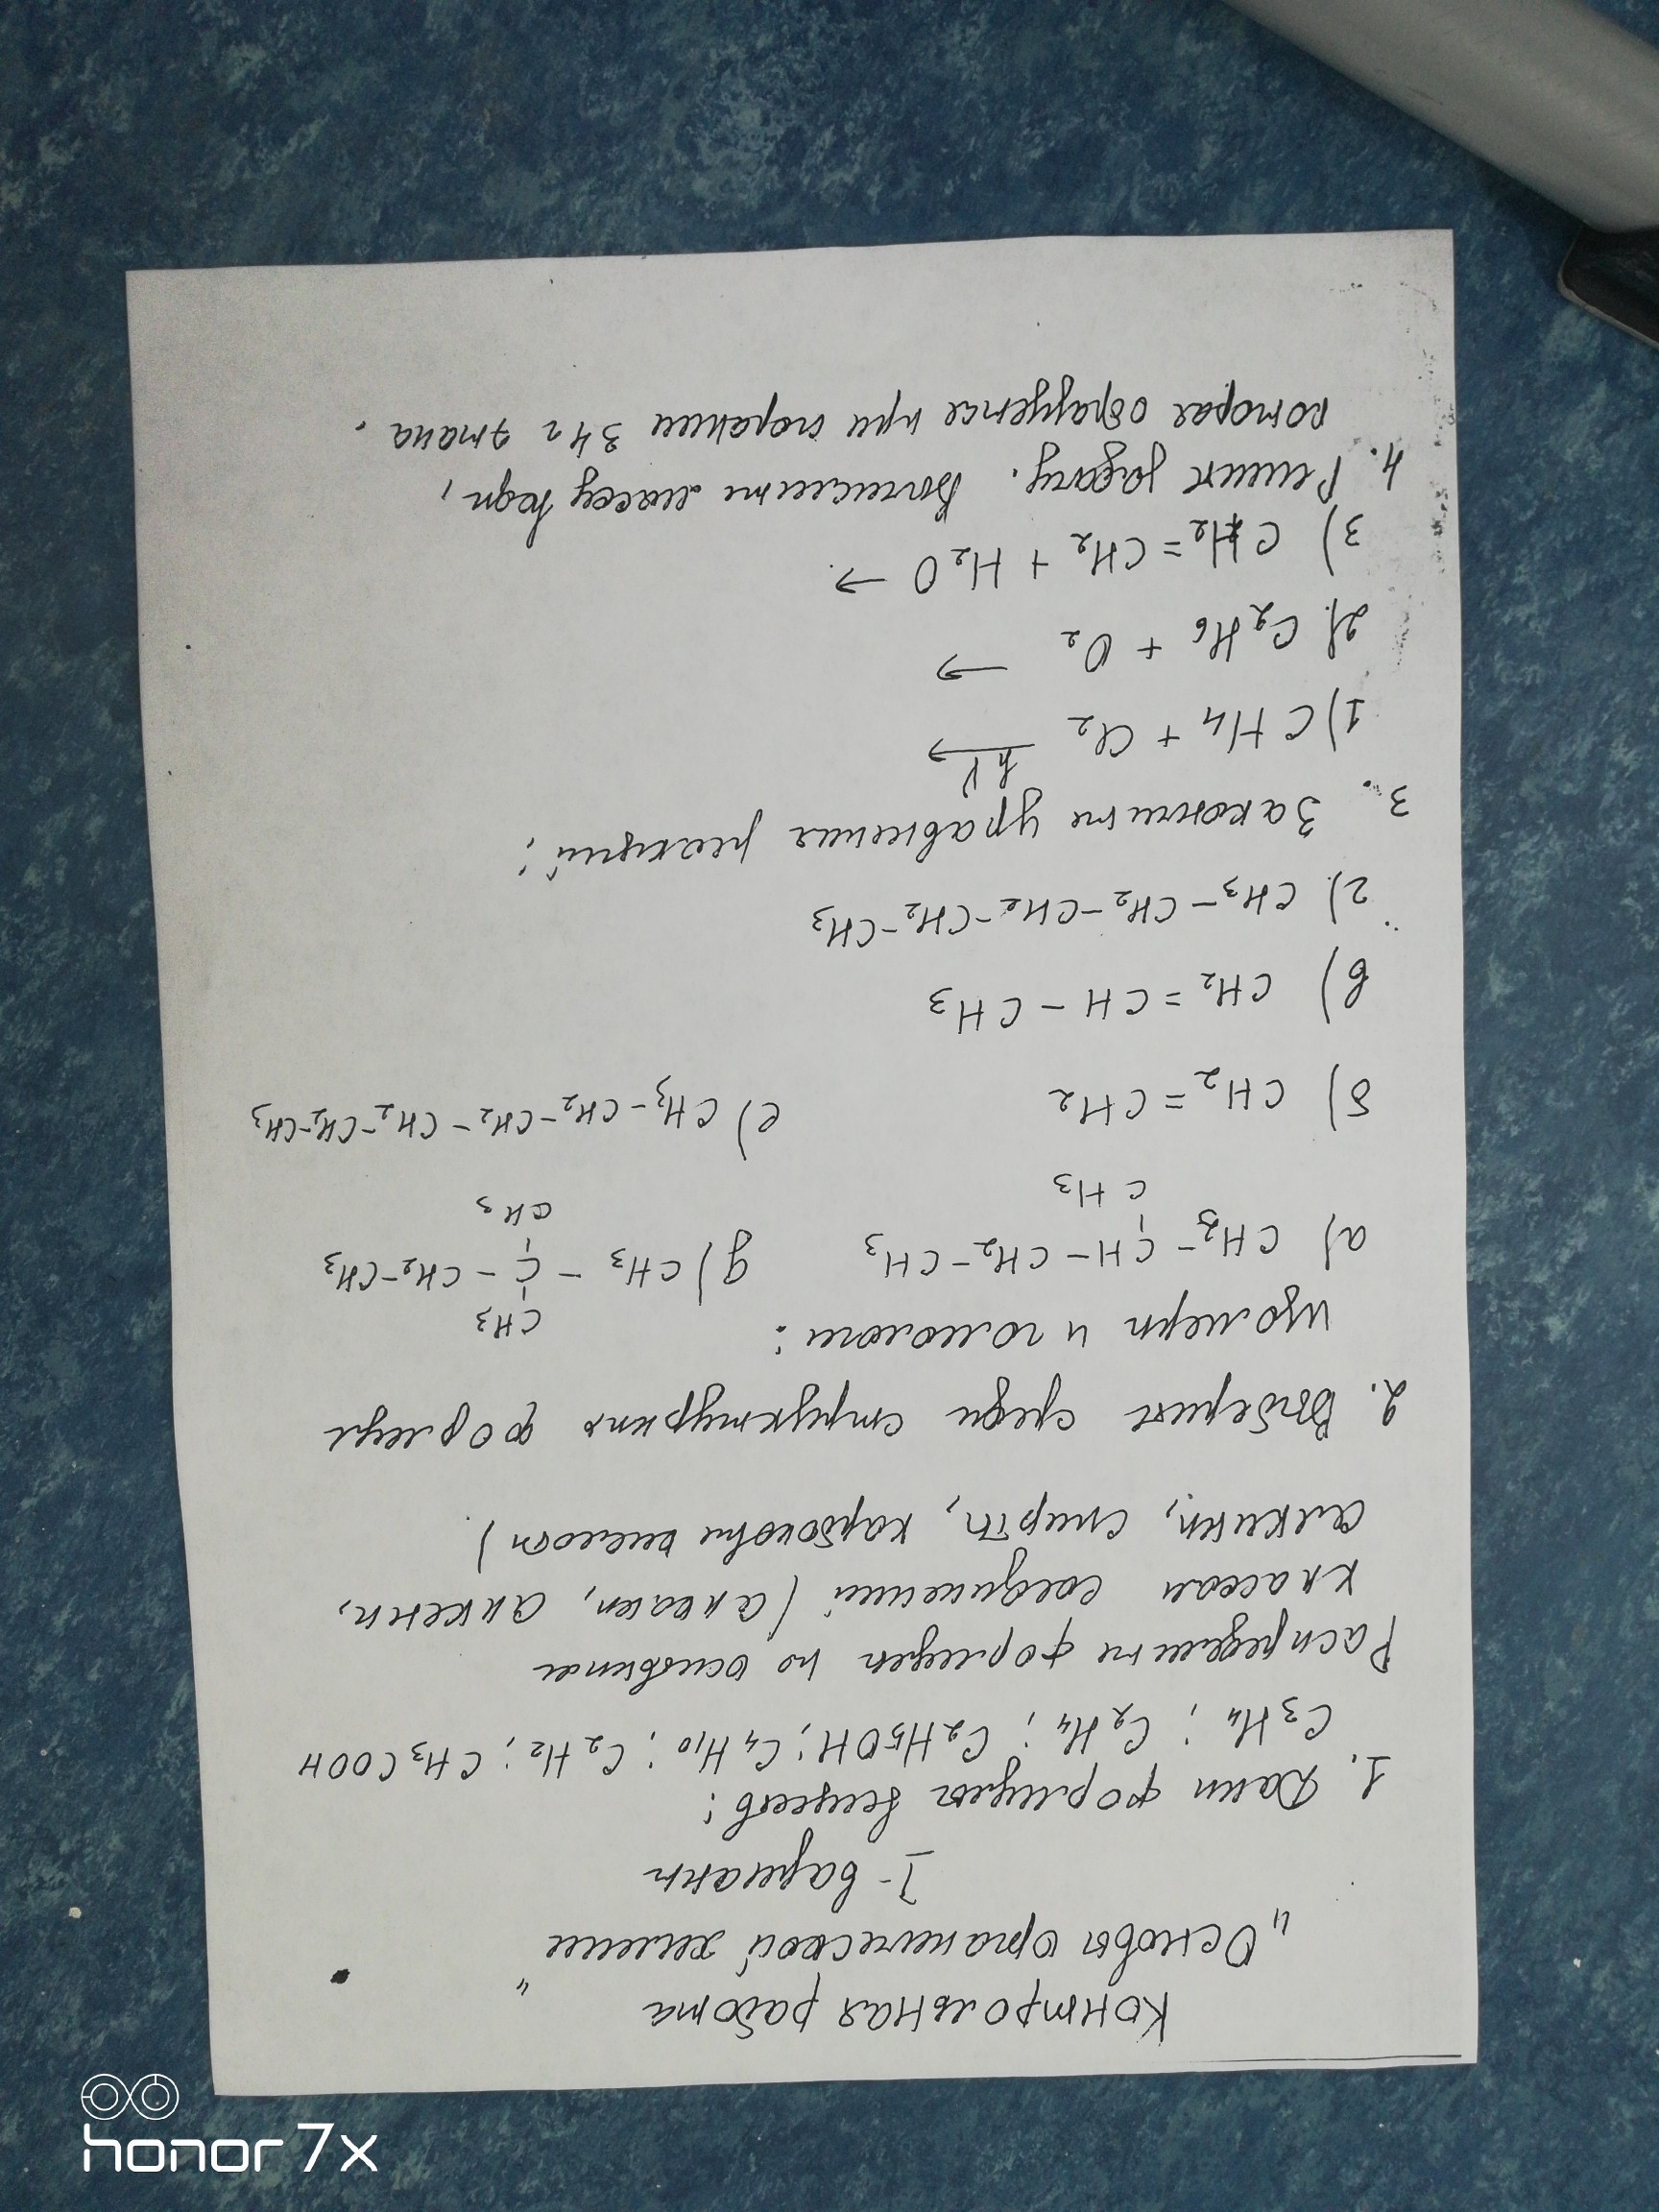 Контрольная работа
„Основы органической химии"
I-вариант
1. Даны формулы веществ:
C₃H₄; C₂H₄; C₂H₅OH; C₄H₁₀; C₂H₂; CH₃COOH
Распределите формулы по основным
классам соединений (алканы, алкены,
алкины, спирты, карбоновые кислоты)
2. Выберите среди структурных формул
изомеры и гомологи:
а) CH₃-CH-CH₂-CH₃
CH₃
CH₃
д) CH₃-C-CH₂-CH₃
CH₃
б) CH₂=CH₂
е) CH₃-CH₂-CH₂-CH₂-CH₂-CH₃
в) CH₂=CH-CH₃
г) CH₃-CH₂-CH₂-CH₂-CH₃
3. Закончите уравнения реакций:
1) CH₄ + Cl₂ hν →
2) C₂H₆ + O₂ →
3) CH₂=CH₂ + H₂O →
4. Решите задачу. Вычислите массу воды,
которая образуется при сгорании 34г этана.
honor 7x